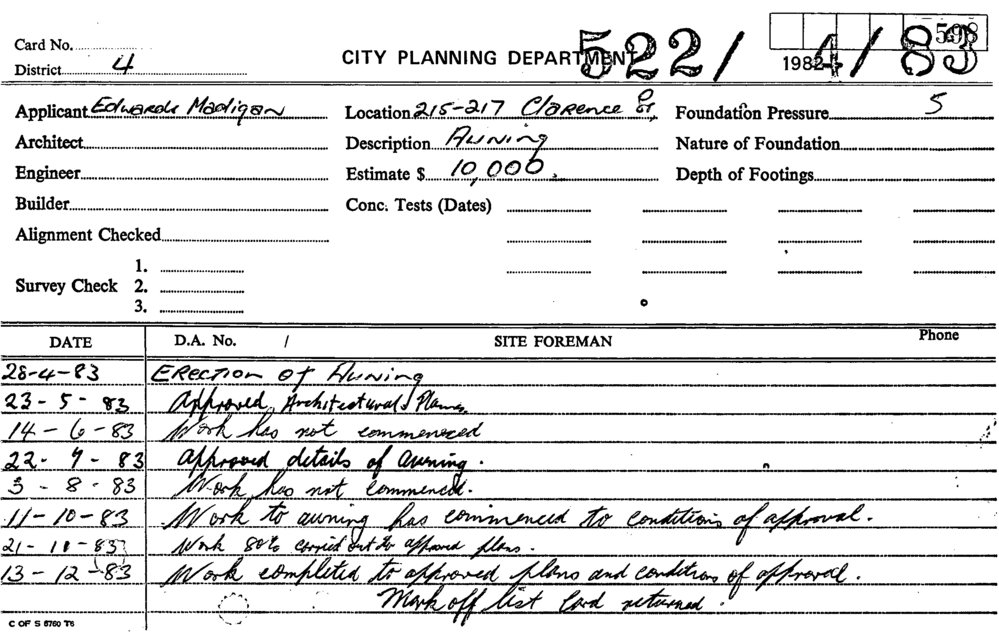 522/4/83
598
Card No.
CITY PLANNING DEPARTMENT
1982
District 4
Applicant Edwards Madigan
Location 215-217 Clarence St,
Foundation Pressure 5
Architect
Description Awning
Nature of Foundation
Engineer
Estimate $ 10,000.
Depth of Footings
Builder
Conc. Tests (Dates)
Alignment Checked
1.
Survey Check 2.
3.
DATE D.A. No. / SITE FOREMAN Phone
28-4-83 Erection of Awning
23-5-83 Approved Architectural Plans
14-6-83 Work has not commenced
22-7-83 Approved details of awning.
3-8-83 Work has not commenced.
11-10-83 Work to awning has commenced to conditions of approval.
21-10-83 Work 80% carried out to approved plans.
13-12-83 Work completed to approved plans and conditions of approval.
Mark off list Card returned.
C OF S 5760 T6